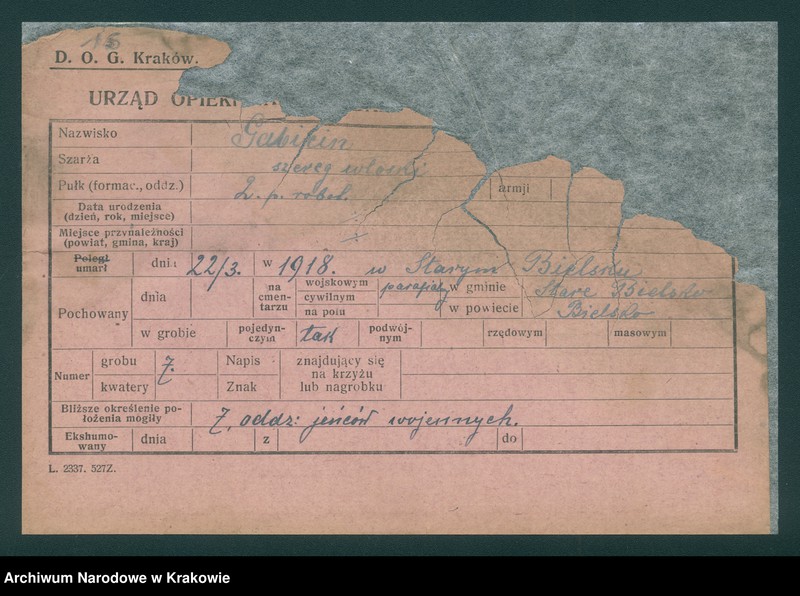 15
D. O. G. Kraków.
URZĄD OPIEKI
Nazwisko
Szarża szereg włoski
Pułk (formac., oddz.) 2. p. robot. armji
Data urodzenia
(dzień, rok, miejsce)
Miejsce przynależności
(powiat, gmina, kraj)
Poległ
umarł dnia 22/3. w 1918. w Starym Bielsku
Pochowany dnia na cmentarzu wojskowym cywilnym na polu parafialny w gminie Stare Bielsko
w powiecie Bielsko
w grobie pojedynczym tak podwójnym rzędowym masowym
Numer grobu 7. Napis znajdujący się
kwatery Znak na krzyżu
lub nagrobku
Bliższe określenie położenia mogiły 7. oddz: jeńców wojennych.
Ekshumowany dnia z do
L. 2337. 527Z.
Archiwum Narodowe w Krakowie